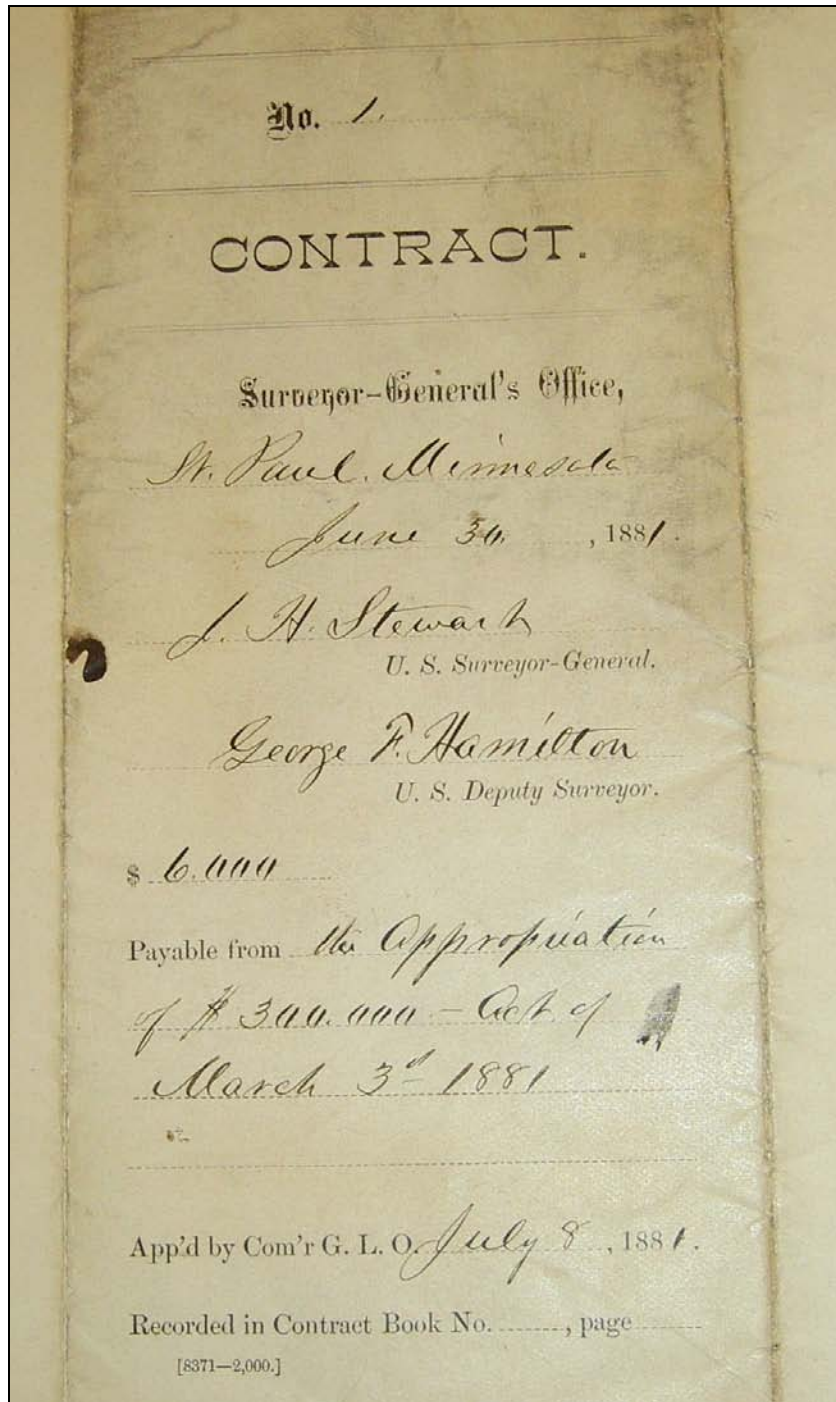 No. 1.
CONTRACT.
Surveyor-General's Office,
St. Paul. Minnesota
June 30. , 1881.
J. H. Stewart
U. S. Surveyor-General.
George F. Hamilton
U. S. Deputy Surveyor.
$ 6.000
Payable from the Appropriation
of $ 300.000 - Act of
March 3d 1881
App'd by Com'r G. L. O. July 8 , 1881.
Recorded in Contract Book No. ........, page ........
[8371—2,000.]